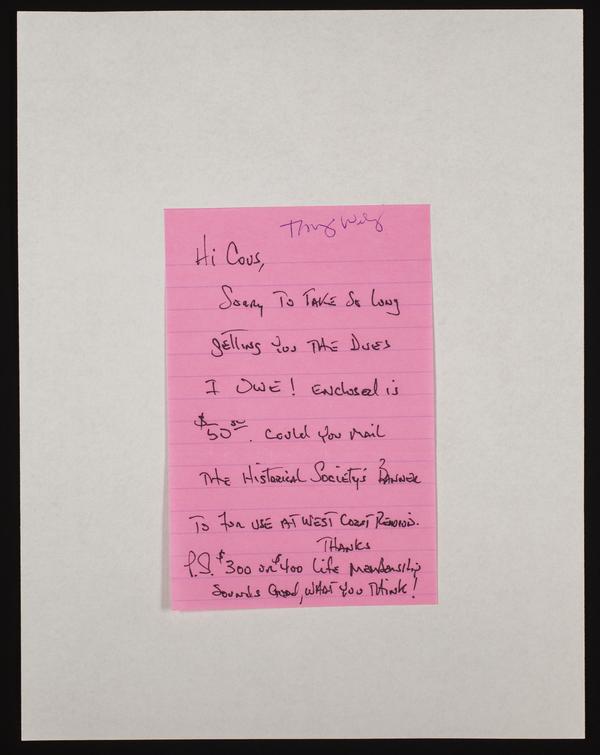 Hi Cous,
Sorry To Take So Long
getting you the Dues
I owe! Enclosed is
$50.00. Could you mail
the Historical Society's Banner
To for use at West Coast Reunion.
Thanks
P.S. $300 or $400 Life Membership
Sounds Good, what you think!